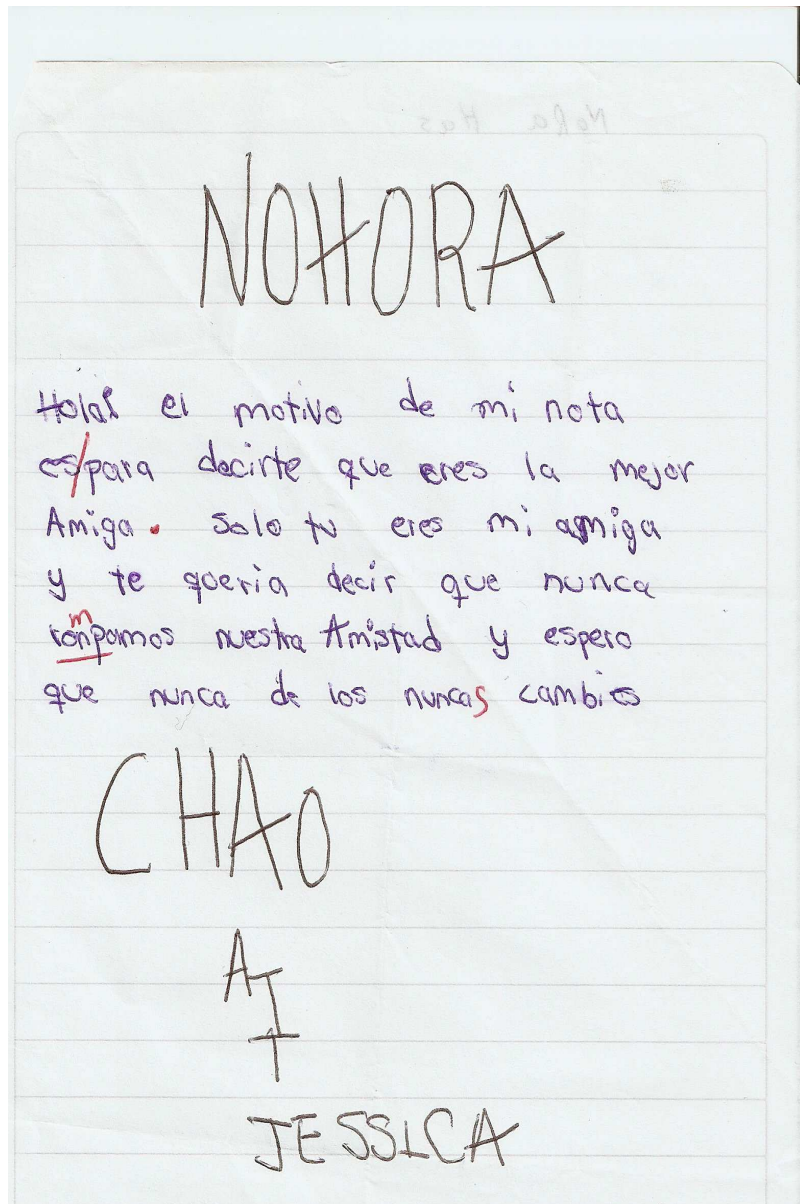 NOHORA
Hola! el motivo de mi nota
es/para decirte que eres la mejor
Amiga. Solo tu eres mi amiga
y te queria decir que nunca
m
ronpamos nuestra Amistad y espero
que nunca de los nuncas cambies
CHAO
ATT
JESSICA